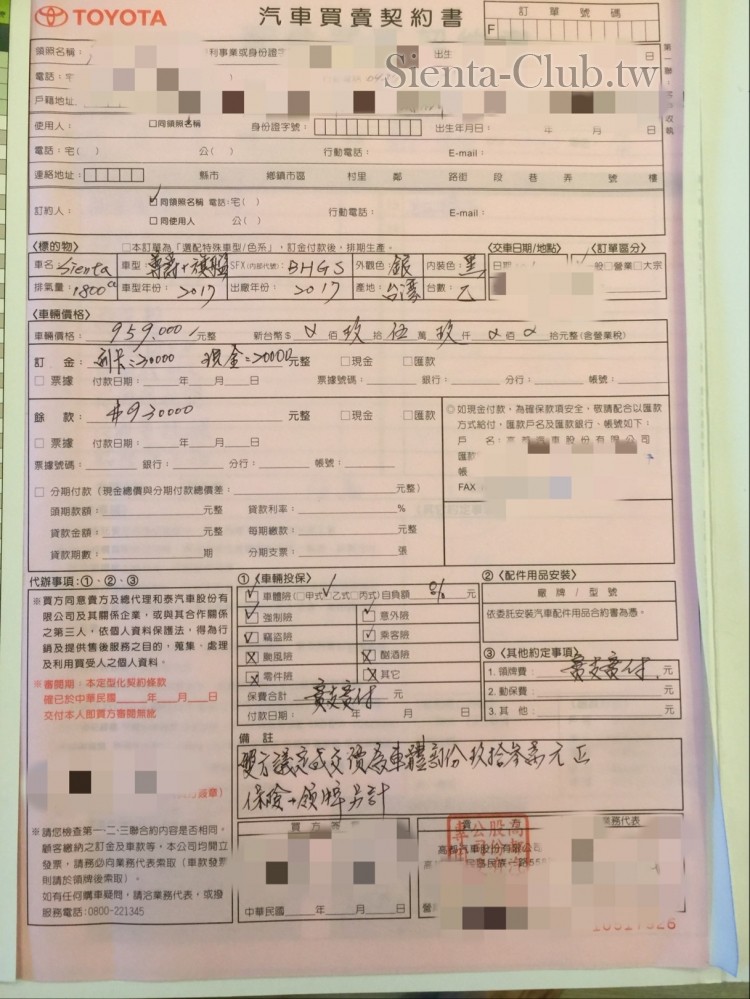 TOYOTA
汽車買賣契約書
訂單號碼
F
領照名稱：
利事業或身份證字
出生
日
電話：宅
）
Sienta-Club.tw
戶籍地址
使用人：
□同領照名稱
身份證字號：
出生年月日： 年 月 日
電話：宅( ) 公( ) 行動電話： E-mail：
連絡地址： 縣市 鄉鎮市區 村里 鄰 路街 段 巷 弄 號 樓
訂約人：
☑同領照名稱 電話：宅( ) 行動電話： E-mail：
□同使用人 公( )
〈標的物〉 □本訂單為「選配特殊車型/色系」，訂金付款後，排期生產。
〈交車日期/地點〉 〈訂單區分〉
車名：Sienta 車型：尊爵+旗艦 SFX(內部代號)：BHGS 外觀色：銀 內裝色：黑
日期： 般□營業□大宗
排氣量：1800cc 車型年份：2017 出廠年份：2017 產地：台灣 台數：乙
〈車輛價格〉
車輛價格：959,000元整 新台幣$ 佰 玖 拾 伍 萬 玖 仟 佰 拾元整(含營業稅)
訂 金：刷卡=10000 現金=20000元整 □現金 □匯款
□ 票據 付款日期： 年 月 日 票據號碼： 銀行： 分行： 帳號：
餘 款：#930000 元整 □現金 □匯款
□ 票據 付款日期： 年 月 日
票據號碼： 銀行： 分行： 帳號：
◎如現金付款，為確保款項安全，敬請配合以匯款
方式給付，匯款戶名及匯款銀行、帳號如下：
戶 名：高都汽車股份有限公司
匯款
帳
FAX
□ 分期付款（現金總價與分期付款總價差： 元整）
頭期款額： 元整 貸款利率： %
貸款金額： 元整 每期繳款： 元整
貸款期數： 期 分期支票： 張
代辦事項：①、②、③
※買方同意貴方及總代理和泰汽車股份有
限公司及其關係企業，或與其合作關係
之第三人，依個人資料保護法，得為行
銷及提供售後服務之目的，蒐集、處理
及利用買受人之個人資料。
※審閱期：本定型化契約條款
確已於中華民國 年 月 日
交付本人即買方審閱無訛
簽章）
※請您檢查第一、二、三聯合約內容是否相同，
顧客繳納之訂金及車款等，本公司均開立
發票，請務必向業務代表索取（車款發票
則請於領牌後索取）。
如有任何購車疑問，請洽業務代表，或撥
服務電話：0800-221345
①〈車輛投保〉
☑車體險(□甲式☑乙式□丙式)自負額 0% 元
☑強制險 ☑意外險
☑竊盜險 ☑乘客險
☒颱風險 ☒酗酒險
☒零件險 ☒其它
保費合計 實支實付 元
付款日期： 年 月 日
②〈配件用品安裝〉
廠牌/型號
依委託安裝汽車配件用品合約書為憑。
③〈其他約定事項〉
1. 領牌費：實支實付 元
2. 動保費： 元
3. 其 他： 元
備 註
雙方議定成交價為車體部份玖拾參萬元正
保險+領牌另計
買方
中華民國 年 月 日
業務代表
高都汽車股份有限公司